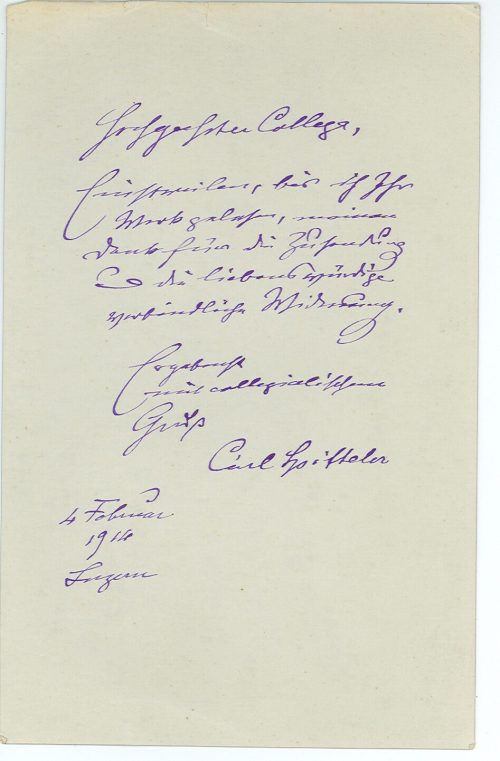 Hochgeehrter College,
Einstweilen, bis ich Ihr
Werk gelesen, meinen
Dank für die Zusendung
u die liebenswürdige
verbindliche Widmung.
Ergebenst
mit collegialischem
Gruß
Carl Spitteler
4 Februar
1914
Luzern